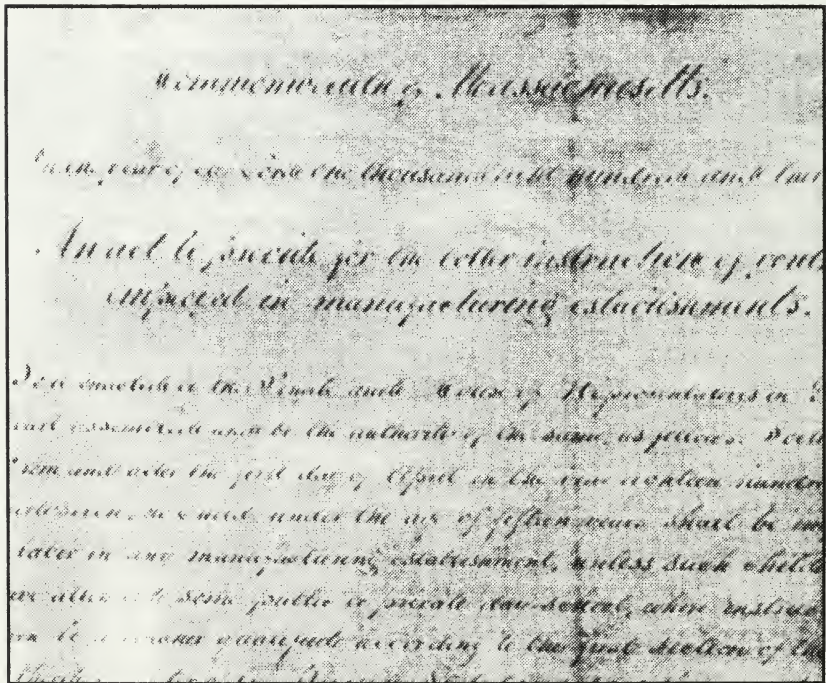 Commonwealth of Massachusetts.
In the year of our Lord one thousand eight hundred and thir
An act to provide for the better instruction of youth
employed in manufacturing establishments.
Be it enacted by the Senate and House of Representatives in
Court assembled and by the authority of the same, as follows.
From and after the first day of April in the year eighteen hundred
under the age of fifteen years shall be em
in any manufacturing establishment, unless such child
some public or private day school, where instruc
by a teacher qualified according to the first section of the